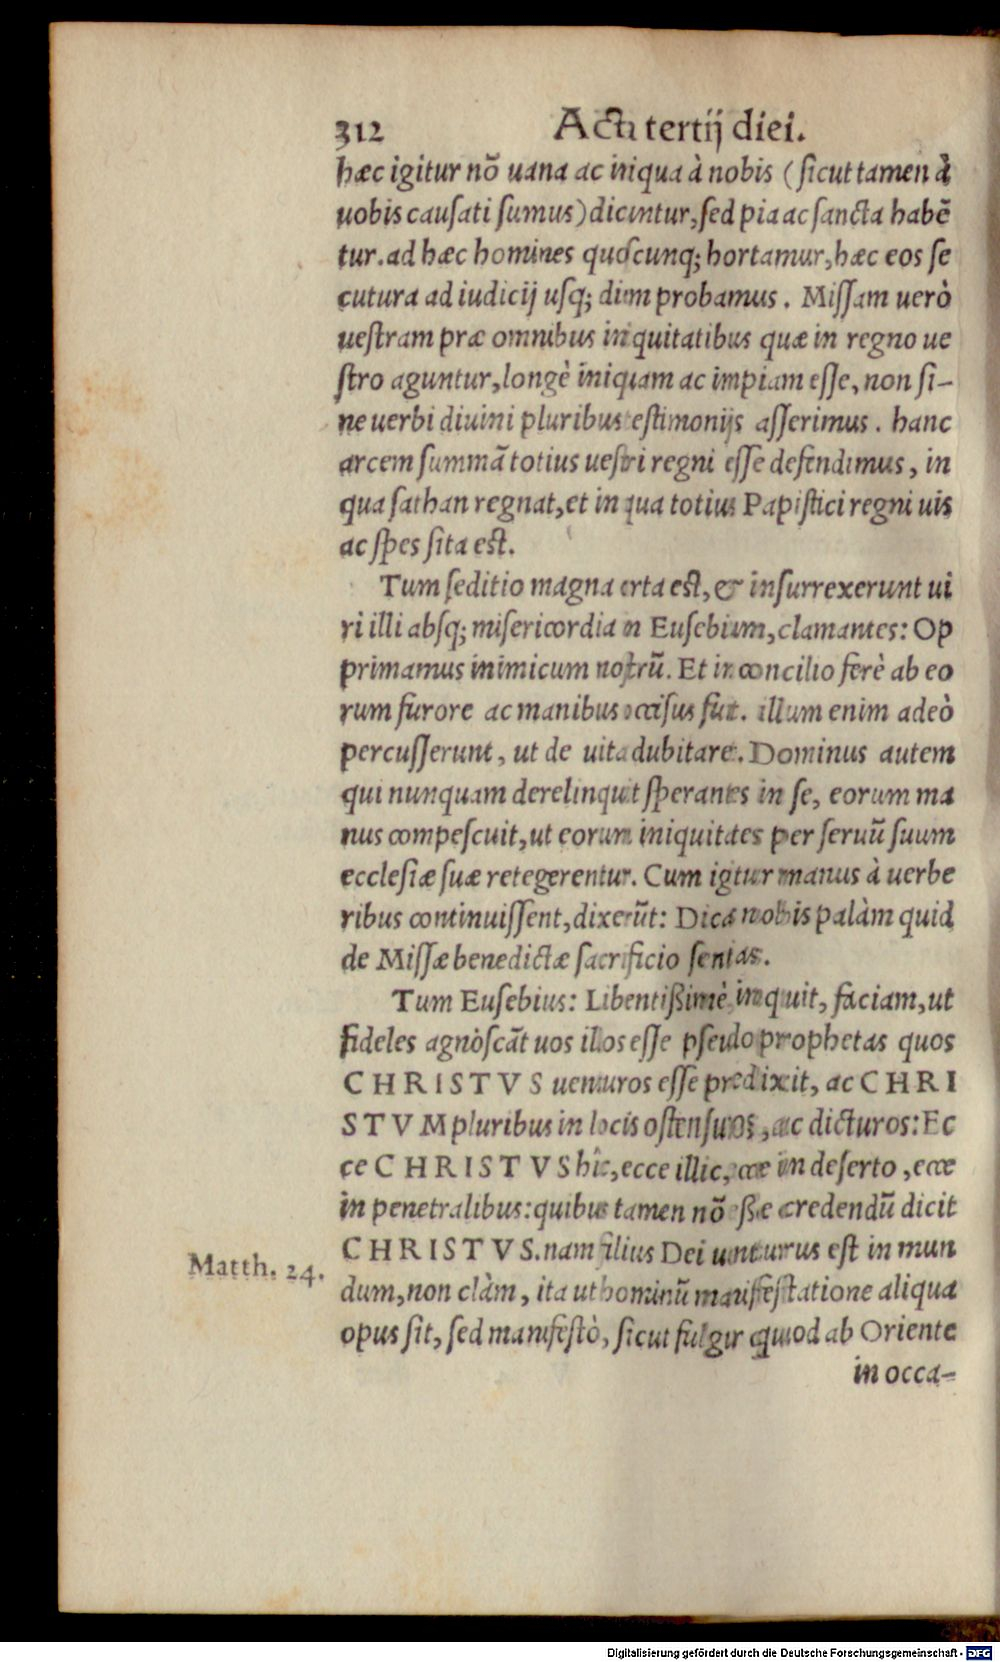 312 Acta tertij diei.
hæc igitur nõ uana ac iniqua à nobis (sicut tamen à
uobis causati sumus) dicuntur, sed pia ac sancta habẽ
tur. ad hæc homines quoscunq; hortamur, hæc eos se
cutura ad iudicij usq; diem probamus. Missam uerò
uestram præ omnibus iniquitatibus quæ in regno ue
stro aguntur, longè iniquam ac impiam esse, non si-
ne uerbi diuini pluribus testimonijs asserimus. hanc
arcem summã totius uestri regni esse defendimus, in
qua sathan regnat, et in qua totius Papistici regni uis
ac spes sita est.
Tum seditio magna orta est, & insurrexerunt ui
ri illi absq; misericordia in Eusebium, clamantes: Op
primamus inimicum nostrũ. Et in concilio ferè ab eo
rum furore ac manibus occisus fuit. illum enim adeò
percusserunt, ut de uita dubitaret. Dominus autem
qui nunquam derelinquit sperantes in se, eorum ma
nus compescuit, ut eorum iniquitates per seruũ suum
ecclesiæ suæ retegerentur. Cum igitur manus à uerbe
ribus continuissent, dixerũt: Dica nobis palàm quid
de Missæ benedictæ sacrificio sentas.
Tum Eusebius: Libentißimè, inquit, faciam, ut
fideles agnòscãt uos illos esse pseudoprophetas quos
CHRISTVS uenturos esse predixit, ac CHRI
STVM pluribus in locis ostensuros, ac dicturos: Ec
ce CHRISTVS hîc, ecce illic, ecce in deserto, ecce
in penetralibus: quibus tamen nõ eße credendũ dicit
CHRISTVS. nam filius Dei uenturus est in mun
Matth. 24.
dum, non clàm, ita ut hominũ manifestatione aliqua
opus sit, sed manifestò, sicut fulgur quod ab Oriente
in occa-
Digitalisierung gefördert durch die Deutsche Forschungsgemeinschaft - DFG